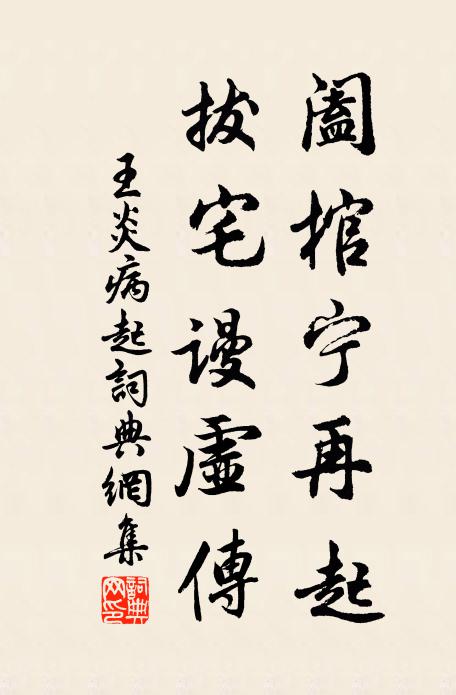 阖棺宁再起
拔宅谩虛傳
王炎病起詞典網集
詞典网印